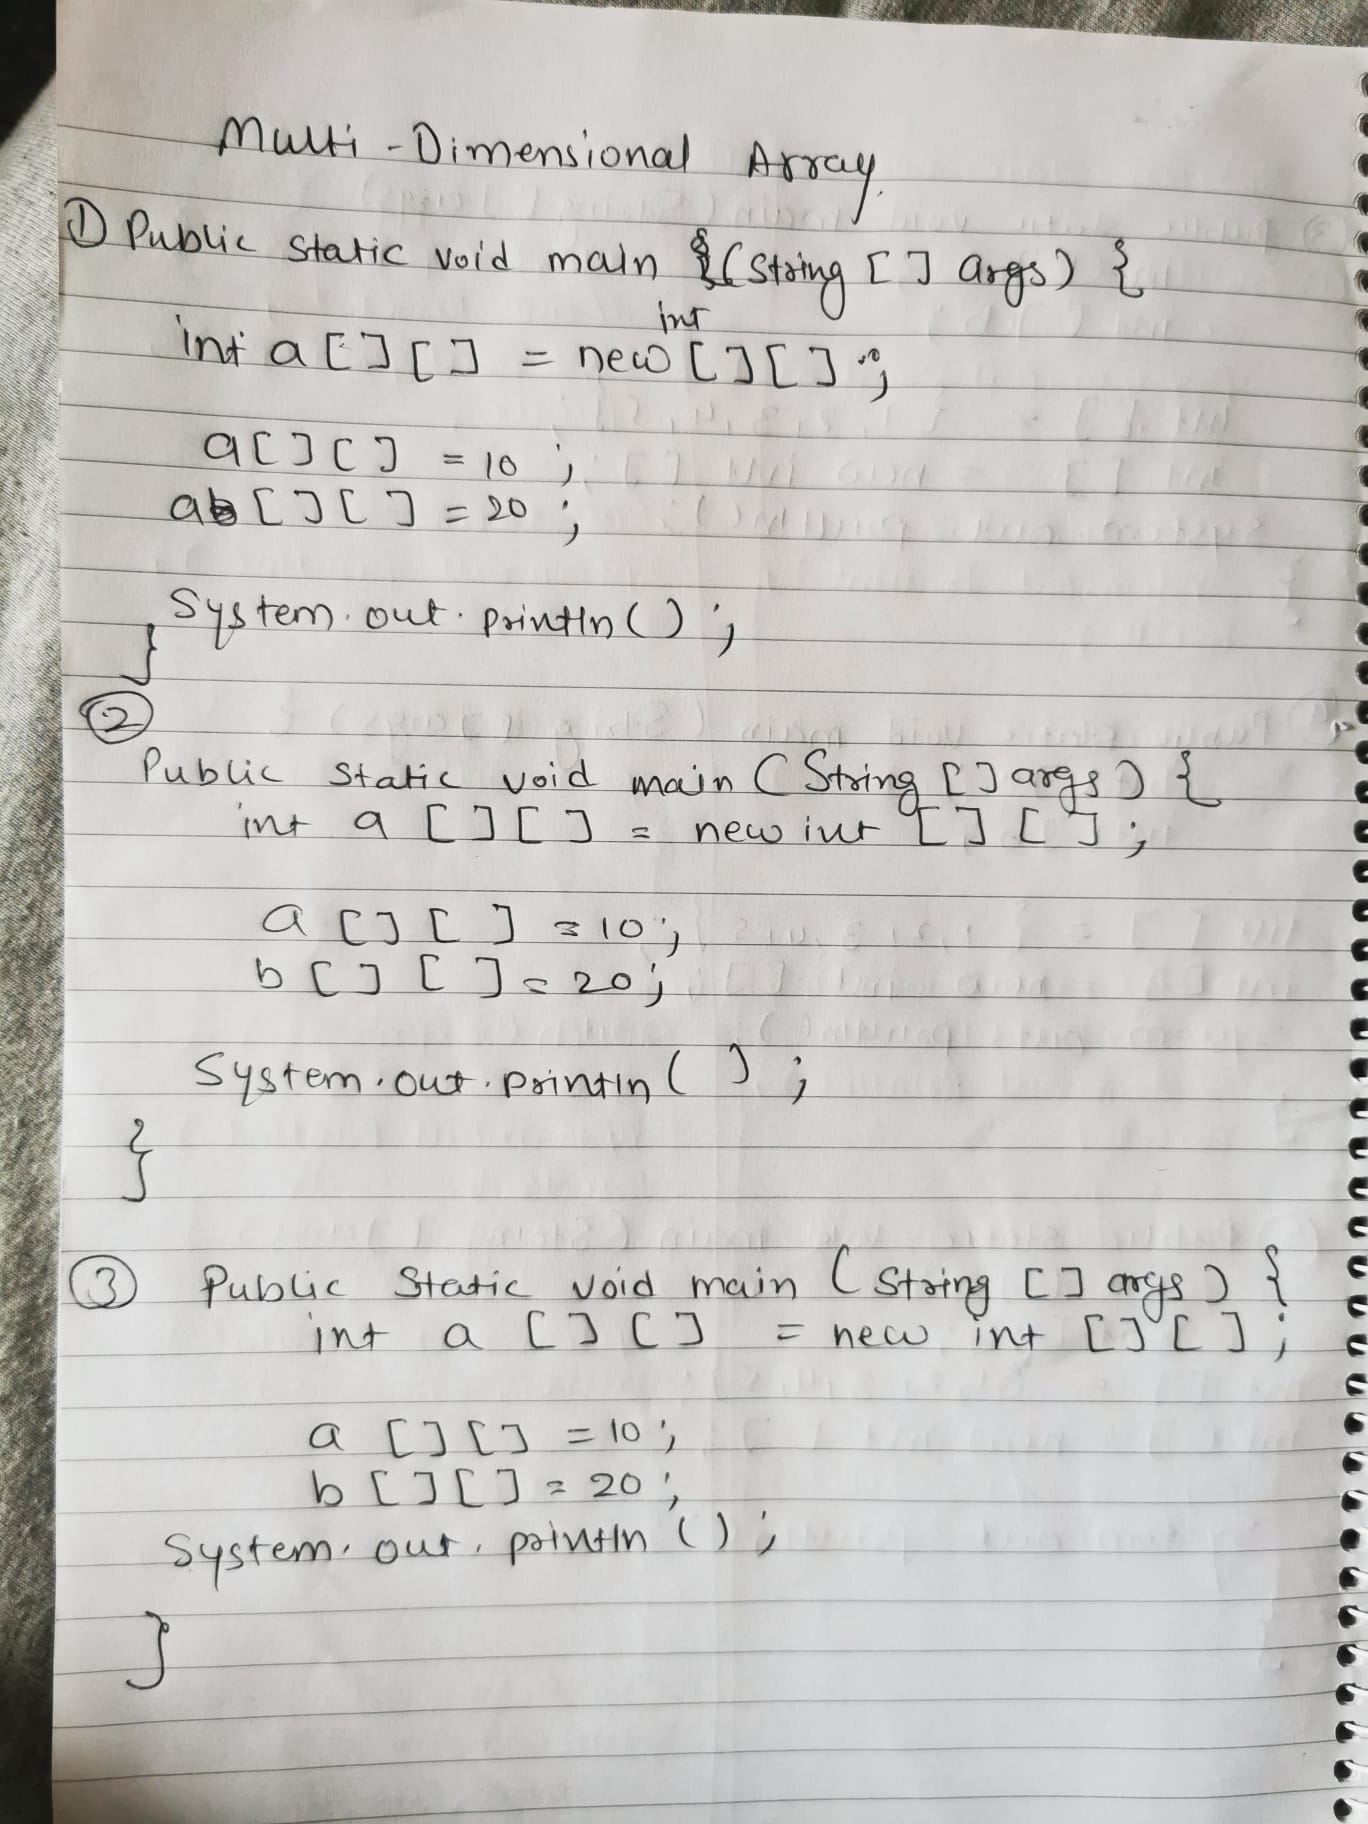 Multi-Dimensional Array
① Public static void main (String [] args) {
int a [] [] = new int [] [] ;
a [] [] = 10 ;
ab [] [] = 20 ;
System.out.println() ;
}
②
Public static void main (String [] args) {
int a [] [] = new int [] [] ;
a [] [] = 10 ;
b [] [] = 20 ;
System.out.println( ) ;
}
③ Public Static void main (String [] args) {
int a [] [] = new int [] [] ;
a [] [] = 10 ;
b [] [] = 20 ;
System.out.println () ;
}